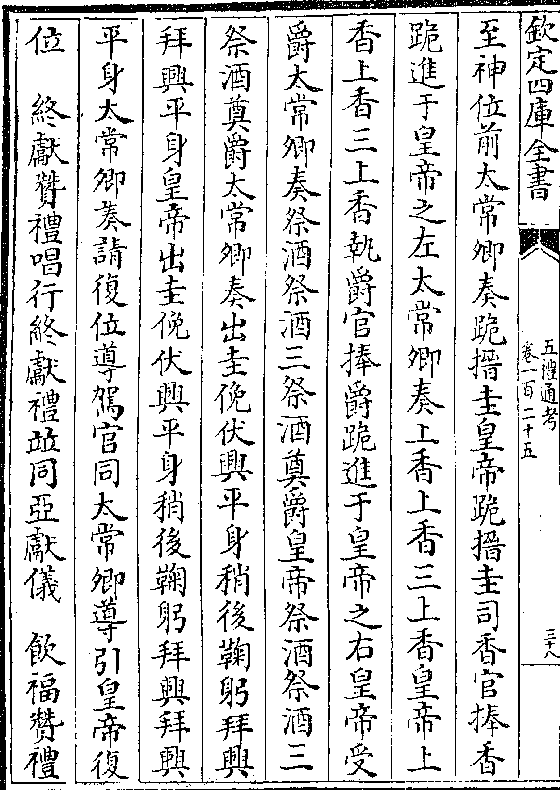 欽定四庫全書
五禮通考
卷一百二十五
三十八
至神位前太常卿奏跪搢圭皇帝跪搢圭司香官捧香
跪進于皇帝之左太常卿奏上香上香三上香皇帝上
香上香三上香執爵官捧爵跪進于皇帝之右皇帝受
爵太常卿奏祭酒祭酒三祭酒奠爵皇帝祭酒祭酒三
祭酒奠爵太常卿奏出圭俛伏興平身稍後鞠躬拜興
拜興平身皇帝出圭俛伏興平身稍後鞠躬拜興拜興
平身太常卿奏請復位導駕官同太常卿導引皇帝復
位　終獻贊禮唱行終獻禮並同亞獻儀　飲福贊禮